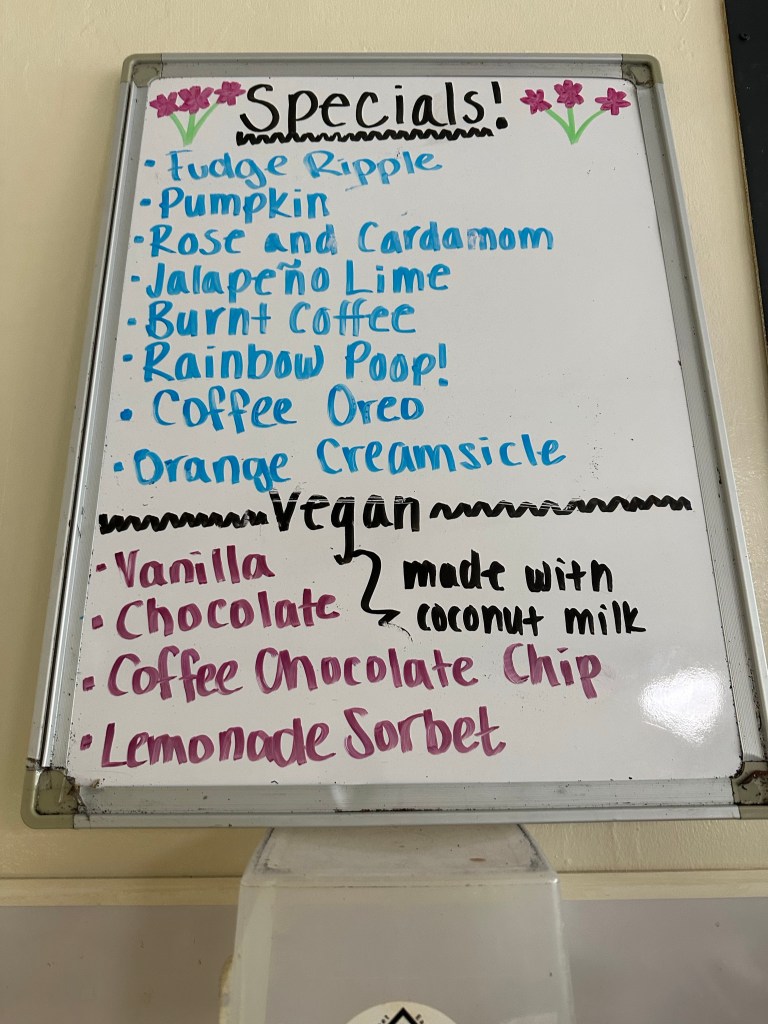 Specials!
• Fudge Ripple
• Pumpkin
• Rose and Cardamom
• Jalapeño Lime
• Burnt Coffee
• Rainbow Poop!
• Coffee Oreo
• Orange Creamsicle
Vegan
• Vanilla
• Chocolate
made with
coconut milk
• Coffee Chocolate Chip
• Lemonade Sorbet